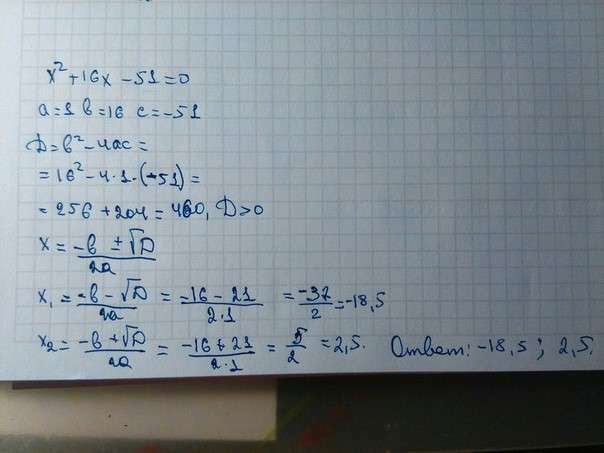 x²+16x-51=0
a=1 в=16 c=-51
D=в²-4ac=
=16²-4·1·(-51)=
=256+204=460, D>0
x=-в±√D/2a
x₁=-в-√D/2a=-16-21/2·1=-37/2=-18,5
x₂=-в+√D/2a=-16+21/2·1=5/2=2,5. Ответ: -18,5; 2,5.